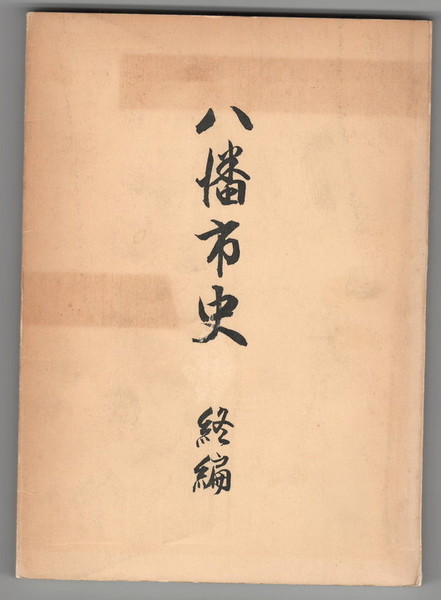 八幡市史 終編